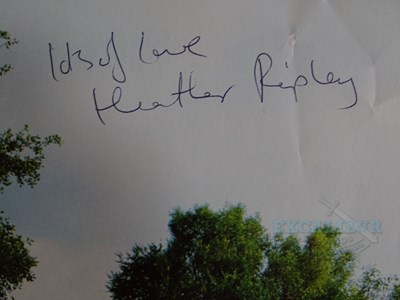 lots of love
Heather Ripley